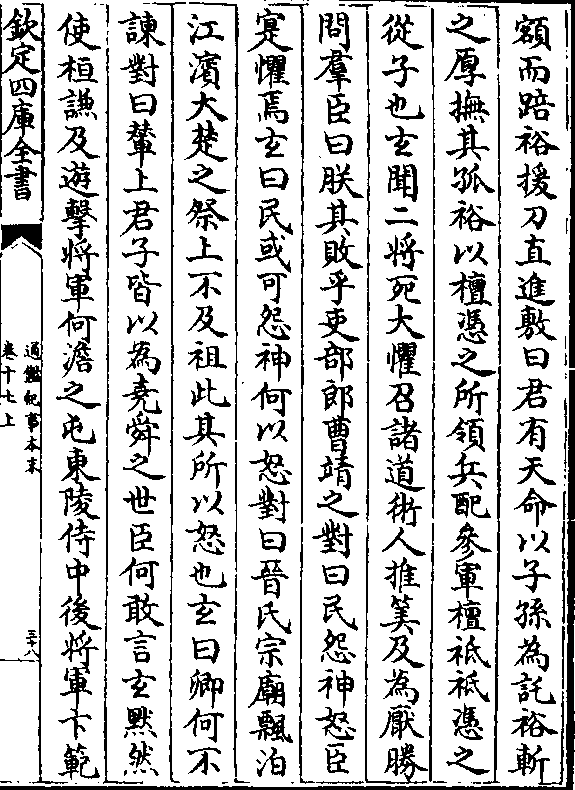 額而踣裕援刀直進敷曰君有天命以子孫為託裕斬
之厚撫其孤裕以檀憑之所領兵配參軍檀祗祗憑之
從子也玄聞二將死大懼召諸道術人推筭及為厭勝
問羣臣曰朕其敗乎吏部郎曹靖之對曰民怨神怒臣
寔懼焉玄曰民或可怨神何以怒對曰晉氏宗廟飄泊
江濱大楚之祭上不及祖此其所以怒也玄曰卿何不
諫對曰輦上君子皆以為堯舜之世臣何敢言玄黙然
使桓謙及遊擊將軍何澹之屯東陵侍中後將軍卞範
欽定四庫全書
通鑑紀事本末
卷十七上
三十八